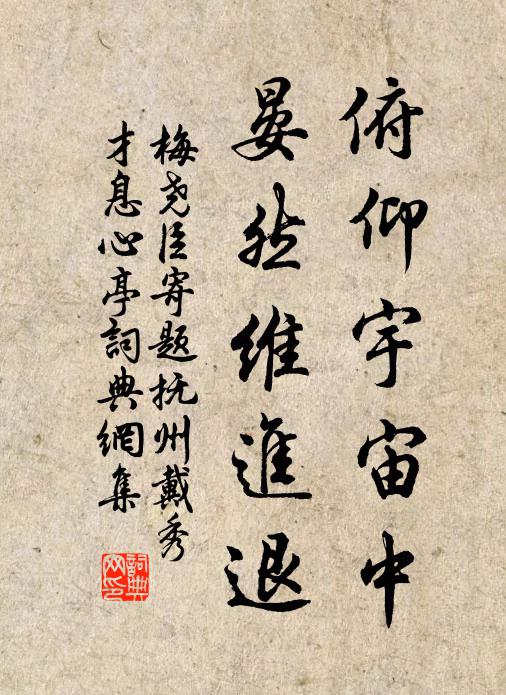 俯仰宇宙中
晏然維進退
梅尧臣寄题抚州戴秀
才息心亭詞典網集
詞典
网印